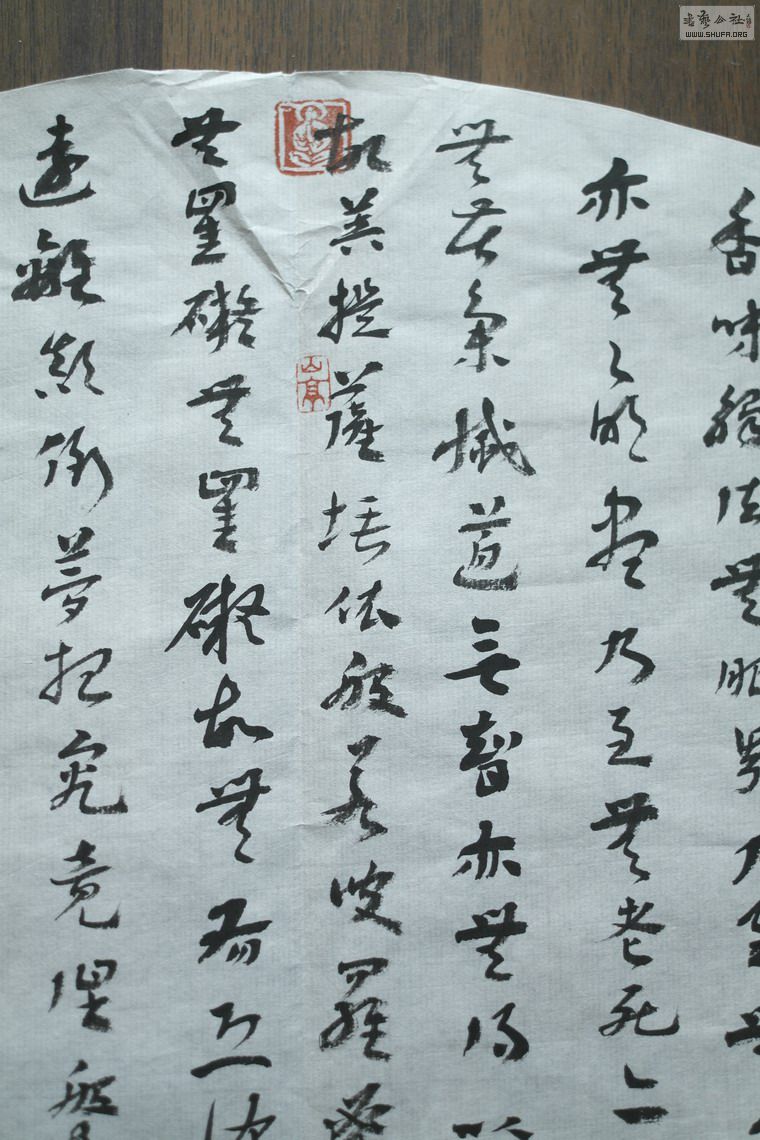 香味觸法無眼界乃至無
亦無々明盡乃至無老死亦
無苦集滅道无智亦無得以
故菩提薩埵依般若波羅蜜
無罣礙無罣礙故無有恐怖
遠離顛倒夢想究竟涅槃
書藝公社
WWW.SHUFA.ORG